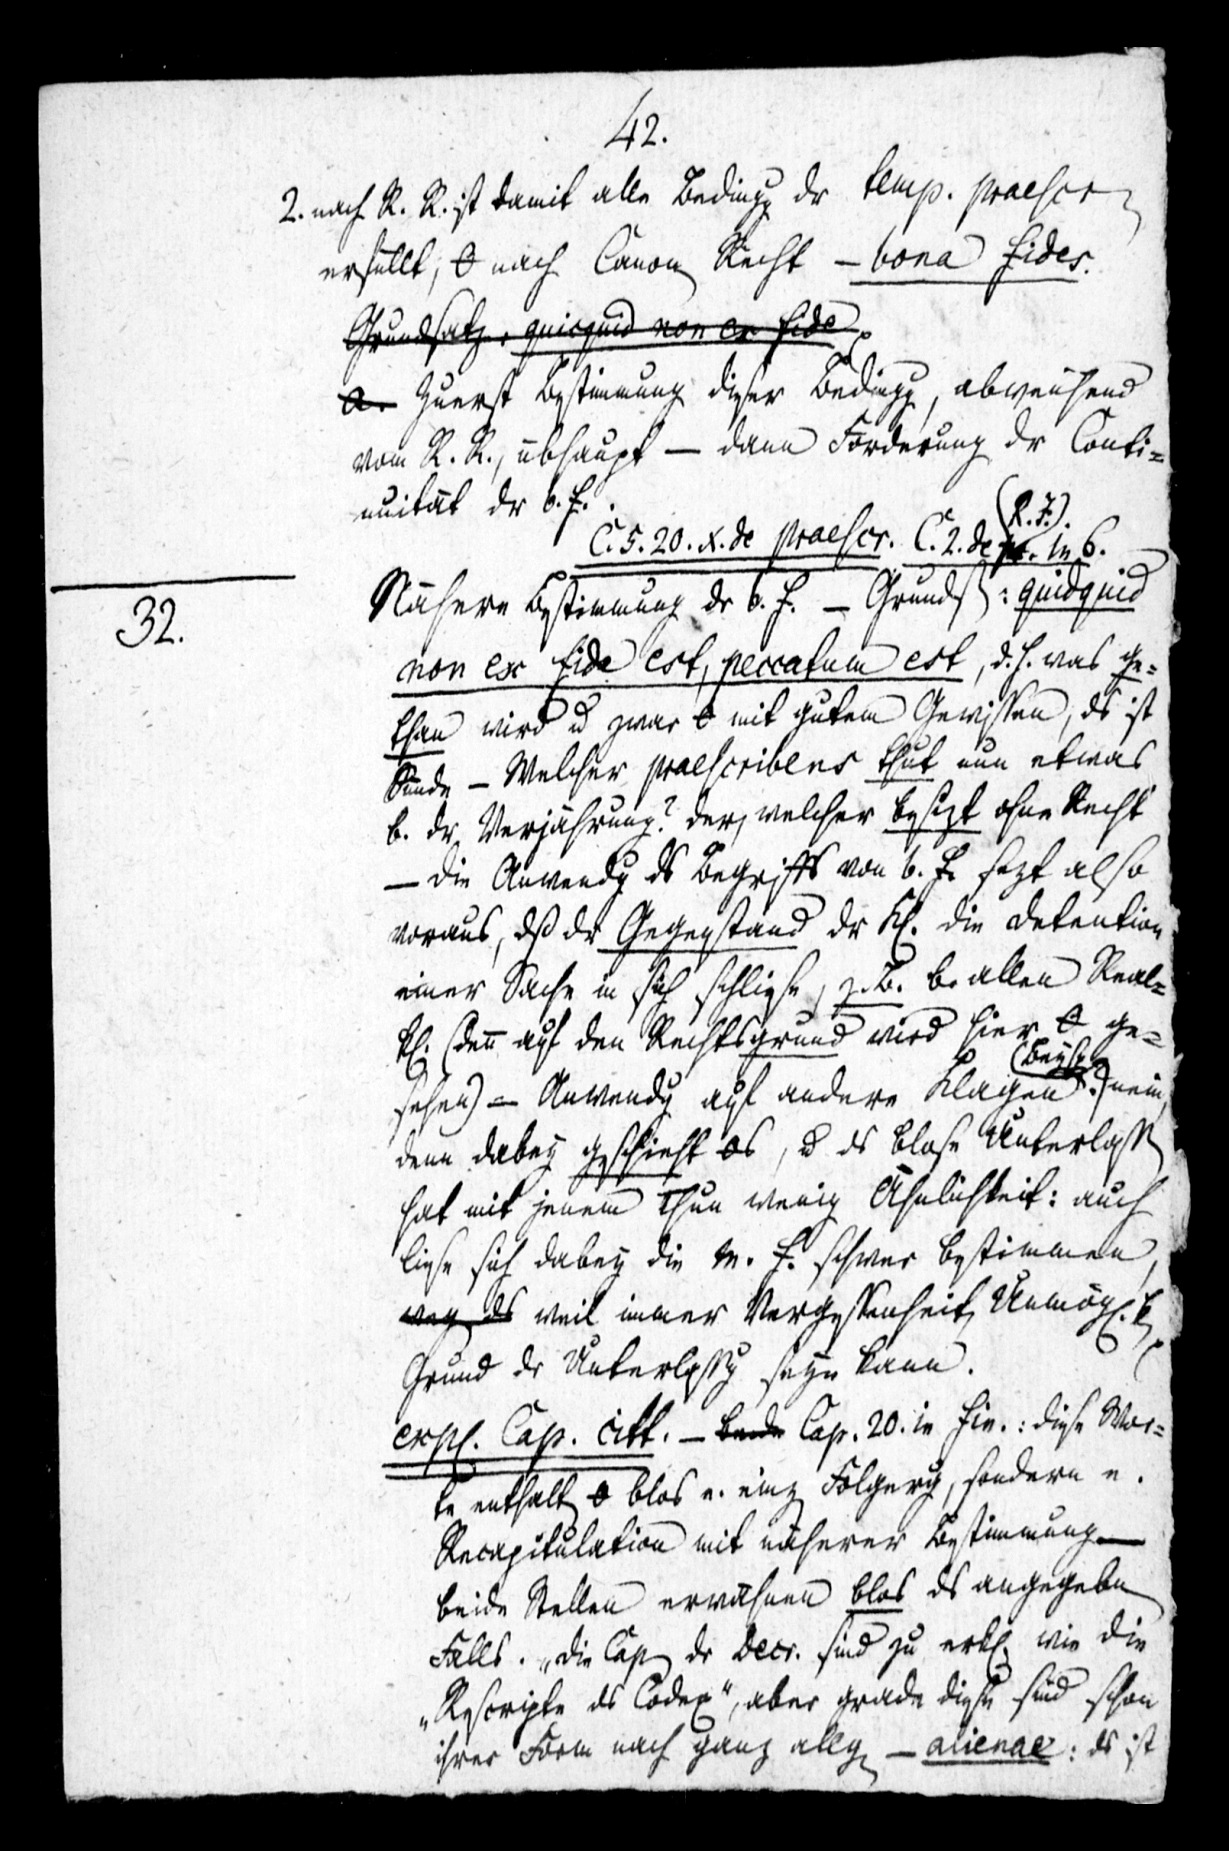 42.
2. nach R. R. ist damit alle Bedingg dr temp. praescr
erfüllt, 0 nach Canon Recht – bona fides.
Grundsatz: quicquid non ex fide
a. Zuerst Bestimmung dieser Bedingg, abweichend
vom R. R., übhaupt – dann Forderung dr Conti=
nuität dr b. f.
(R. J.).
C. 5. 20. X. de praescr. C. 2. de pr. in 6.
32.
Nähere Bestimmung dr b. f. – Grunds: quidquid
non ex fide est, peccatum est, d. h. was ge=
than wird u zwar 0 mit gutem Gewissen, ds ist
Sünde – Welcher praescribens thut nun etwas
b. dr Verjährung? der, welcher besizt ohne Recht
– die Anwendg ds Begriffs von b. f. sezt also
voraus, dß dr Gegenstand dr Kl. die Detention
einer Sache in sich schliese, z. B. b. allen Real=
kl. (den auf den Rechtsgrund wird hier 0 ge=
sehen) – Anwendg auf andere Klagen? nein,
(Beysp.)
denn dabey geschieht 0s, u ds blose Unterlass
hat mit jenem Thun wenig Ähnlichkeit: auch
liese sich dabey die m. f. schwer bestimmen,
weg ds weil immer Vergessenheit, Unmögl.k
Grund dr Unterlassg seyn kann.
expl. Cap. citt. – beide Cap. 20. in fin.: diese Wor=
te enthalt 0 blos e. einz Folgerg, sondern e.
Recapitulation mit näherer Bestimmung –
beide Stellen erwähnen blos ds angegeben
Falls. „die Cap dr Decr. sind zu erkl. wie die
„Rescripte ds Codex“, aber grade diese sind schon
ihrer Form nach ganz allg – alienae: ds ist